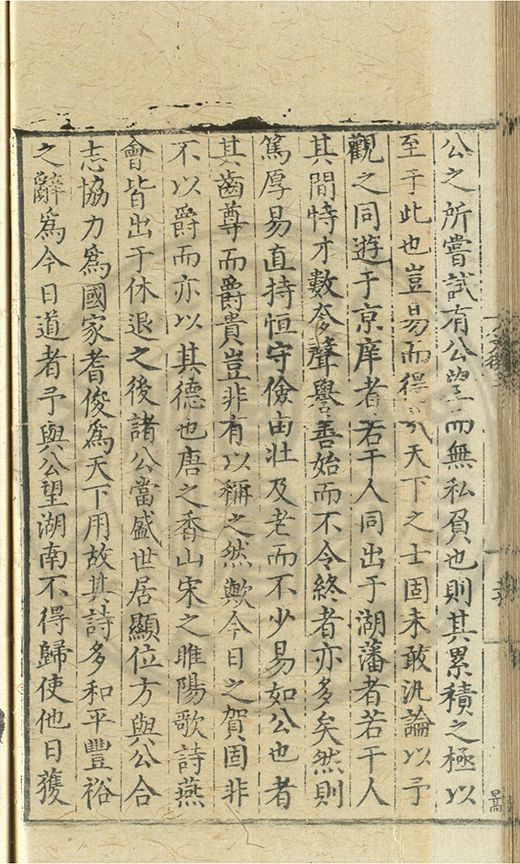 公之所嘗試有公望而無私負也則其累積之極以
至于此也豈易而得哉天下之士固未敢汎論以予
觀之同遊于京庠者若干人同出于湖藩者若干人
其間恃才數奪聲譽善始而不令終者亦多矣然則
篤厚易直持恒守儉由壯及老而不少易如公也者
其齒尊而爵貴豈非有以稱之然歟今日之賀固非
不以爵而亦以其德也唐之香山宋之睢陽歌詩燕
會皆出于休退之後諸公當盛世居顯位方與公合
志協力爲國家耆俊爲天下用故其詩多和平豐裕
之辭爲今日道者予與公望湖南不得歸使他日獲